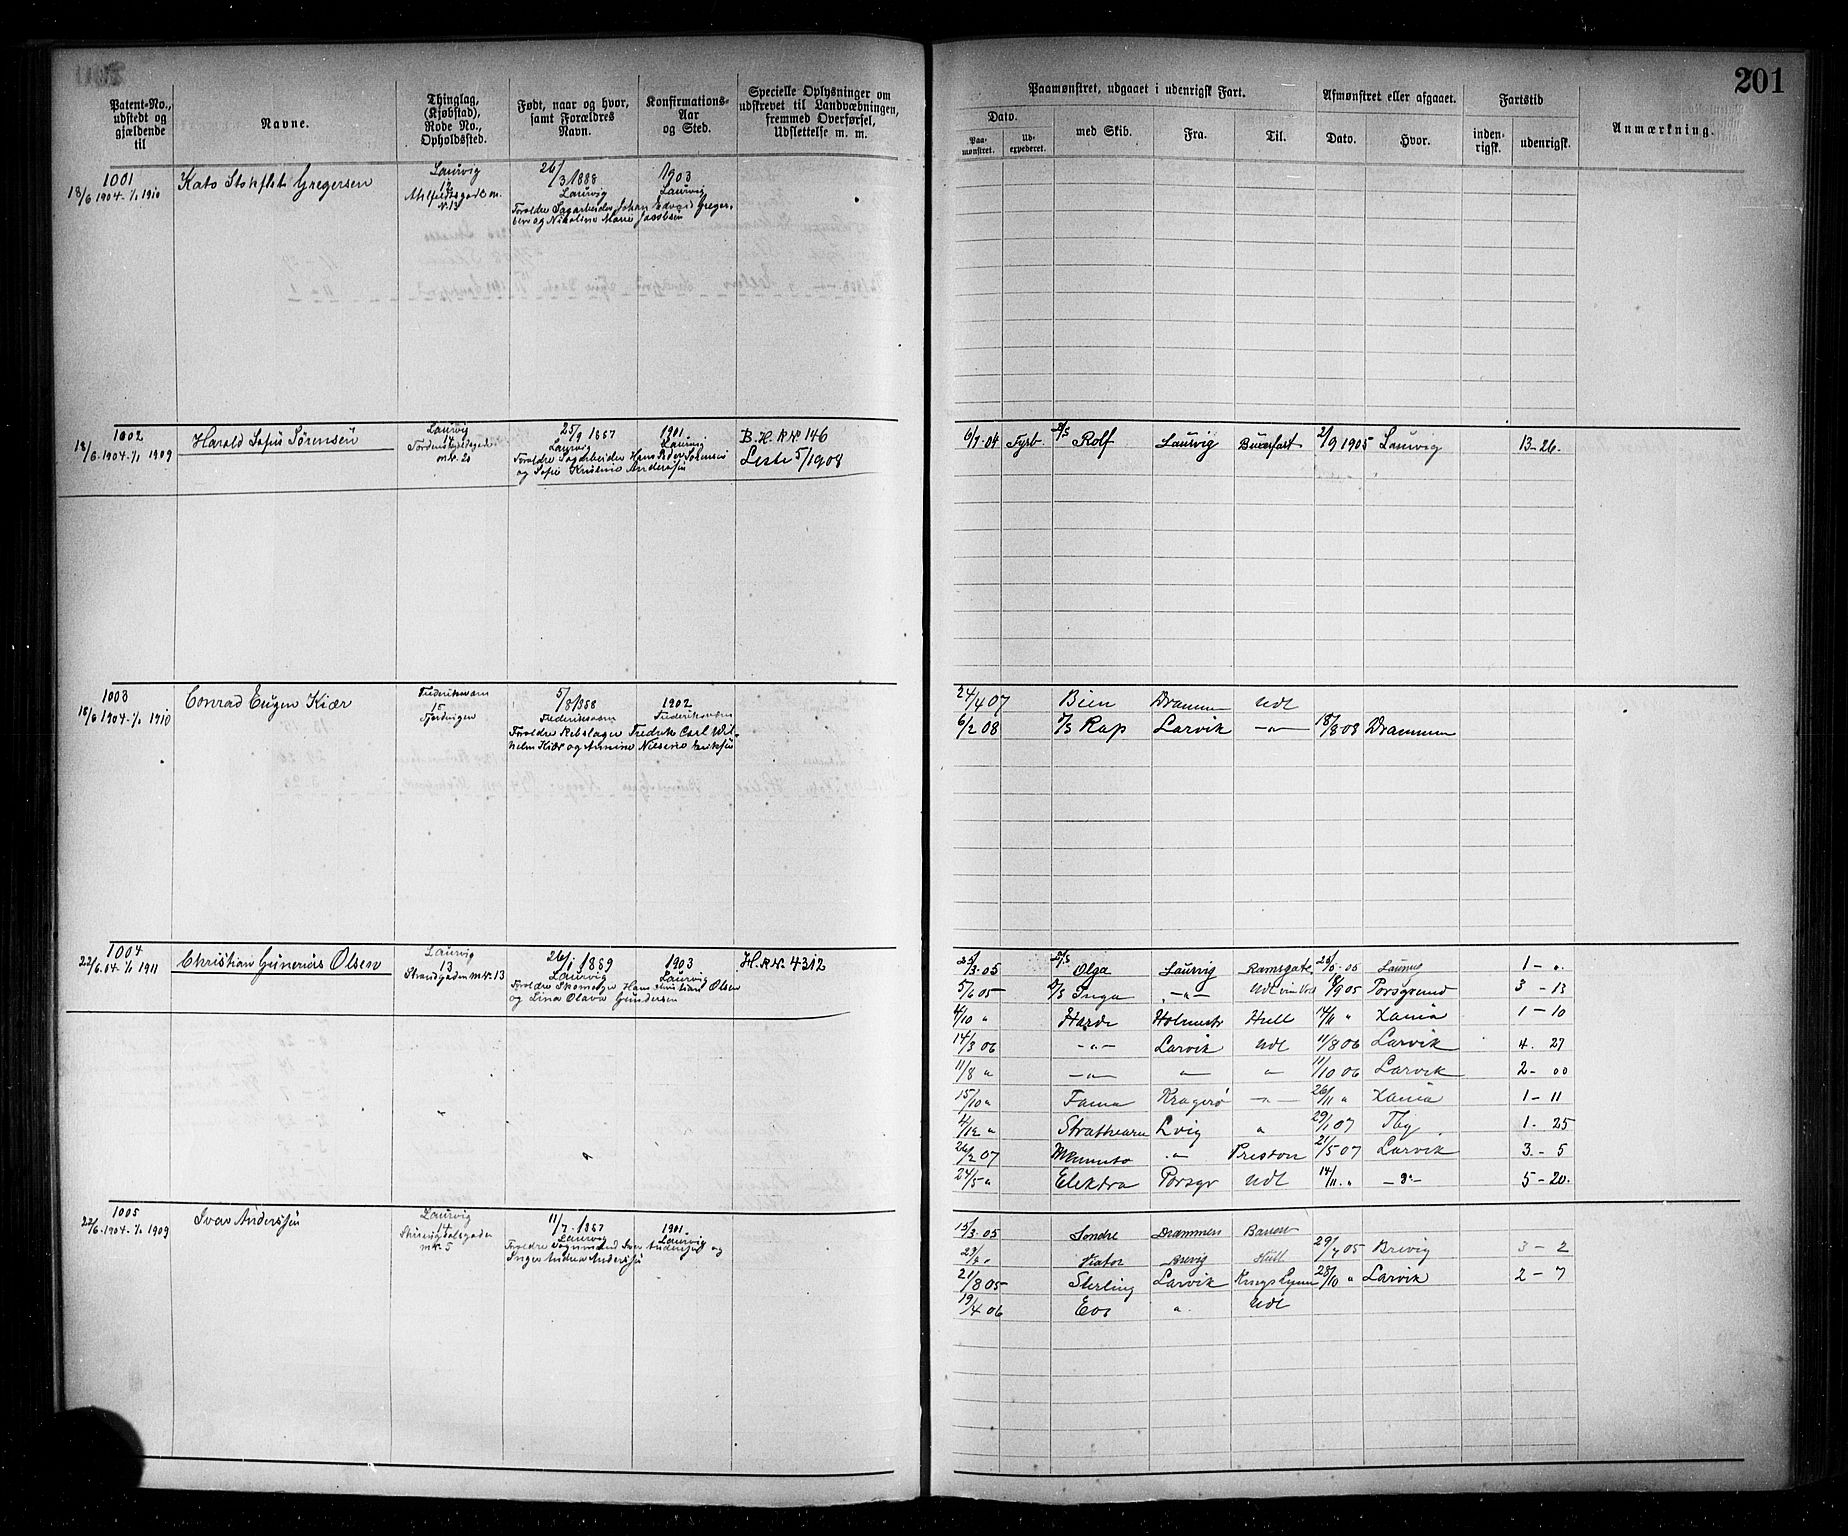 201
Patent-No.,
udstedt og
gjældende
til
Navne.
Thinglag,
(Kjøbstad),
Rode No.,
Opholdssted.
Født, naar og hvor,
samt Forældres
Navn.
Konfirmations-
Aar
og Sted.
Specielle Oplysninger om
udskrevet til Landvæbningen,
fremmed Overførsel,
Udslettelse m. m.
Paamønstret, udgaaet i udenrigsk Fart.
Dato.
Paa-
mønstret.
Ud-
expederet.
med Skib.
Fra.
Til.
Afmønstret eller afgaaet.
Dato.
Hvor.
Fartstid
inden-
rigsk.
udenrigsk.
Anmærkning.
1001
18/6 1904 - 1/1 1910
Kato Gregersen
Laurvig
12
N. 13
26/3 1888
Laurvig
1903
Laurvig
Forældre Sagarbeider Johan Edvard Greger-
sen og Nikoline Marie Jacobsen
1002
18/6 1904 - 1/1 1909
Harald Sofus Sørensen
Laurvig
14
m. 20
25/9 1887
Laurvig
1901
Laurvig
Forældre Sagarbeider Hans Peder Sørensen
og Sofie Kristine Anderssen
B. H. R. No. 146
Liste 5/1908
6/7 04 S/S Rolf Laurvig 2/9 1905 Laurvig 13 - 26.
1003
18/6 1904 - 1/1 1910
Conrad Eugen Kiær
Frederiksværn
15
5/8 1888
Frederiksværn
1902
Frederiksværn
Forældre Rebslager Fredrik Carl Wil-
helm Kiær og Nilsine
24/4 07 Bien Drammen Udl
6/2 08 S/S Rap Larvik -"- 18/8 08 Drammen
1004
22/6 04 - 1/1 1911
Christian Gunerius Olsen
Laurvig
13
Strandgaden m. No. 13
26/1 1889
Laurvig
1903
Laurvig
Forældre Skomager Hans Christian Olsen
og Lina Olava Gundersen
H. R. No. 4312
25/3 05 S/S Olga Laurvig Ramsgate 25/5 05 Laurvig 1 - "
5/6 05 S/S Inga -"- Udl 18/9 05 Porsgrund 3 - 13
4/10 " Holmestr Hull 14/11 " Xania 1 - 10
14/3 06 -"- Larvik Udl 11/8 06 Larvik 4. 27
11/8 " -"- " " 11/10 06 Larvik 2 - 00
15/10 " Fama Kragerø -"- 26/11 " Xania 1 - 11
4/12 " Strathearn Lvig " 29/1 07 Tbg 1. 25
26/2 07 " Preston 21/5 07 Larvik 3. - 5
24/5 " Elektra Porsgr Udl 14/11 " -"- 5 - 20.
1005
22/6 1904 - 1/1 1909
Iver Anderssen
Laurvig
14
m. 5
11/7 1887
Laurvig
1901
Laurvig
Forældre Iver Anderssen og
Inger Andrea Anderssen
15/3 05 Søndre Drammen
Viator Brevig Hull 29/7 05 Brevig 3 - 2
21/8 05 Sterling Larvik Kings Lynn 28/10 " Larvik 2 - 7
19/4 06 Eos " Udl